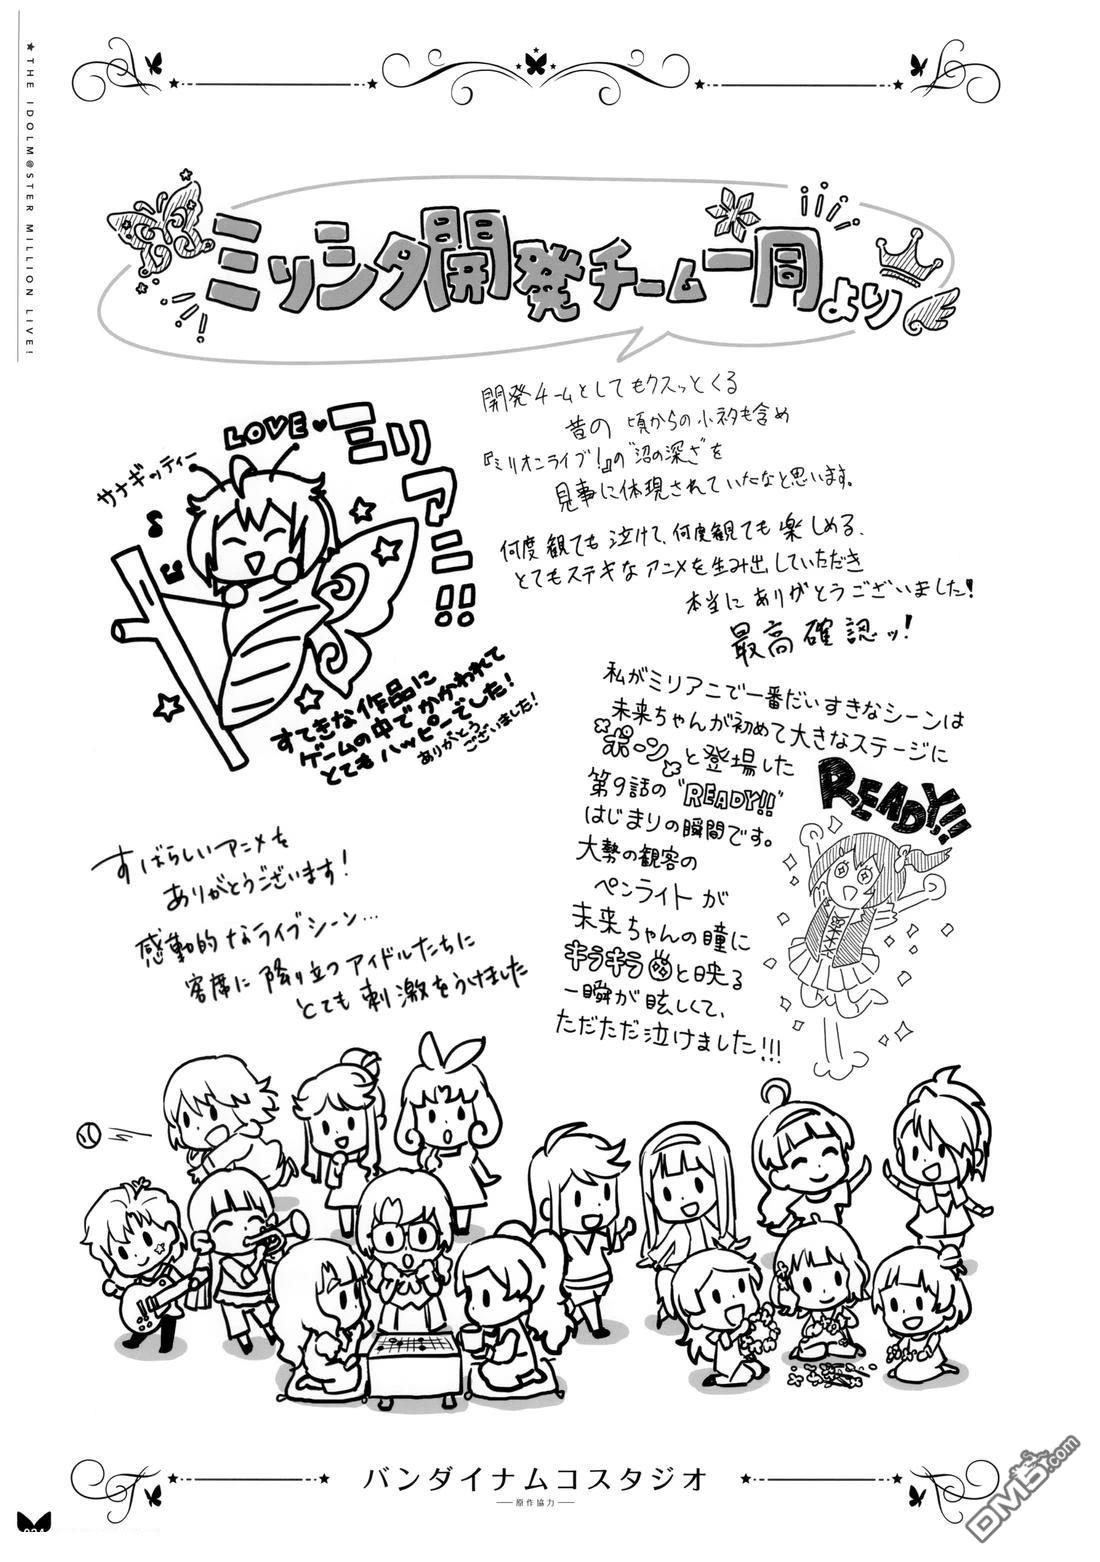 ★THE IDOLM@STER MILLION LIVE!
ミリシタ開発チーム一同より
LOVE♥ミリアニ!!
サナギッティー
♪
すてきな作品に
ゲームの中でかかわれて
とてもハッピーでした!
ありがとう
ございました!
開発チームとしてもクスッとくる
昔の頃からの小ネタも含め
『ミリオンライブ!』の"沼の深さ"を
見事に体現されていたなと思います。
何度観ても泣けて、何度観ても楽しめる、
とてもステキなアニメを生み出していただき
本当にありがとうございました!
最高確認ッ!
私がミリアニで一番だいすきなシーンは
未来ちゃんが初めて大きなステージに
ポーンと登場した
第9話の"READY!!"
はじまりの瞬間です。
大勢の観客の
ペンライトが
未来ちゃんの瞳に
キラキラと映る
一瞬が眩しくて、
ただただ泣けました!!!
READY!!
すばらしいアニメを
ありがとうございます!
感動的なライブシーン…
客席に降り立つアイドルたちに
とても刺激をうけました
バンダイナムコスタジオ
原作協力
DM5.com